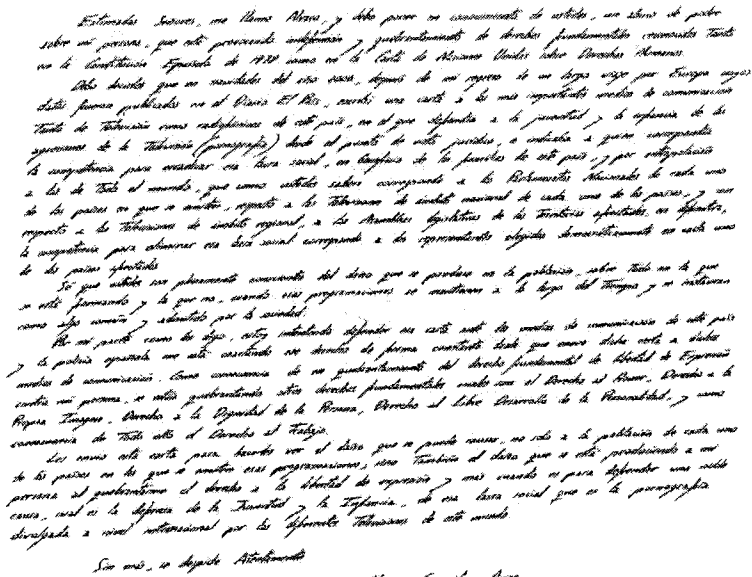 Estimados Señores, me llamo Alvaro, y debo poner en conocimiento de ustedes, un abuso de poder
sobre mi persona, que está provocando indefensión y quebrantamiento de derechos fundamentales reconocidos tanto
en la Constitución Española de 1978 como en la Carta de Naciones Unidas sobre Derechos Humanos.
Debo decirles que en navidades del año, después de mi regreso de un largo viaje por Europa cuyos
datos fueron publicados en el Diario El País, escribí una carta a los más importantes medios de comunicación
tanto de Televisión como radiofónicos de este país, en el que defendía a la juventud y la infancia de las
agresiones de la Televisión (pornografía) desde el punto de vista jurídico, e indicaba a quien correspondía
la competencia para erradicar esa lacra social, en beneficio de las familias de este país, y por extrapolación
a las de todo el mundo, que como ustedes saben corresponde a los Parlamentos Nacionales de cada uno
de los países en que se emiten, respecto a las Televisiones de ámbito nacional de cada uno de los países, y con
respecto a las Televisiones de ámbito regional, a las Asambleas legislativas de los Territorios afectados, en definitiva,
la competencia para eliminar esa lacra social corresponde a los representantes elegidos democráticamente en cada uno
de los países afectados.
Sé que ustedes son plenamente conscientes del daño que se produce en la población, sobre todo en la que
se está formando y la que no, cuando esas programaciones se mantienen a lo largo del tiempo y se instauran
como algo común y admitido por la sociedad.
Por mi parte como les digo, estoy intentando defender esa carta ante los medios de comunicación de este país
y la policía española me está coartando ese derecho de forma constante desde que envié dicha carta a dichos
medios de comunicación. Como consecuencia de un quebrantamiento del derecho fundamental de libertad de Expresión
contra mi persona, se están quebrantando otros derechos fundamentales cuales son el Derecho al Honor, Derecho a la
Propia Imagen, Derecho a la Dignidad de la Persona, Derecho al libre Desarrollo de la Personalidad, y como
consecuencia de todo ello el Derecho al Trabajo.
Les envío esta carta para hacerles ver el daño que se puede causar, no solo a la población de cada uno
de los países en los que se emiten esas programaciones, sino también al daño que se está produciendo a mi
persona al quebrantarme el derecho a la libertad de expresión y más cuando es para defender una noble
causa, cual es la defensa de la Juventud y la Infancia, de esa lacra social que es la pornografía
divulgada a nivel internacional por las diferentes Televisiones de este mundo.
Sin más, se despide Atentamente